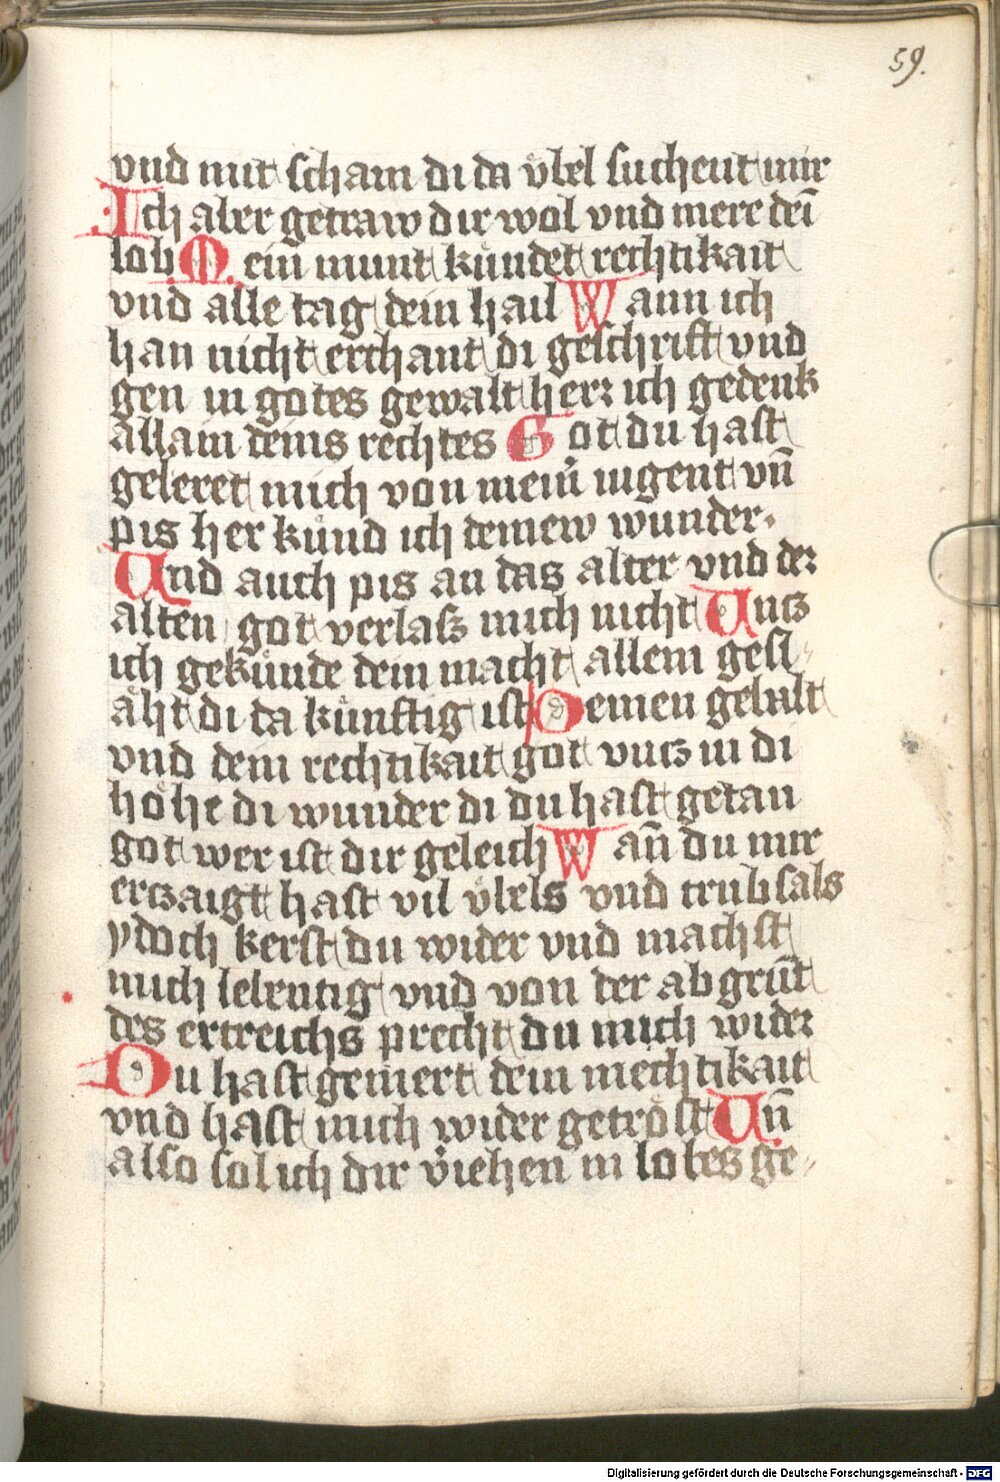 59.
vnd mit scham di da übel suchent mir
Ich aber getraw dir wol vnd mere dei̅
lob Mein munt kündet rechtikait
vnd alle tag dein hail Wann ich
han nicht erchant di geschrift vnd
gen in gotes gewalt herr ich gedenk
allain deins rechtes Got du hast
geleret mich von meinr iugent vn̅
pis her künd ich deinew wunder.
Und auch pis an das alter vnd der
alten got verlasz mich nicht Uncz
ich gekünde dein macht allem gesl-
ächt di da künftig ist Deinen gebalt
vnd dein rechtikait got vncz in di
höhe di wunder di du hast getan
got wer ist dir geleich Wan̅ du mir
erczaigt hast vil übels vnd trubsals
ydoch kerst du wider vnd machst
mich lebentig vnd von der abgru̅t
des ertreichs precht du mich wider
Du hast gemert dein mechtikait
vnd hast mich wider getröst Un̅
also sol ich dir viehen in lobes ge-
Digitalisierung gefördert durch die Deutsche Forschungsgemeinschaft - DFG